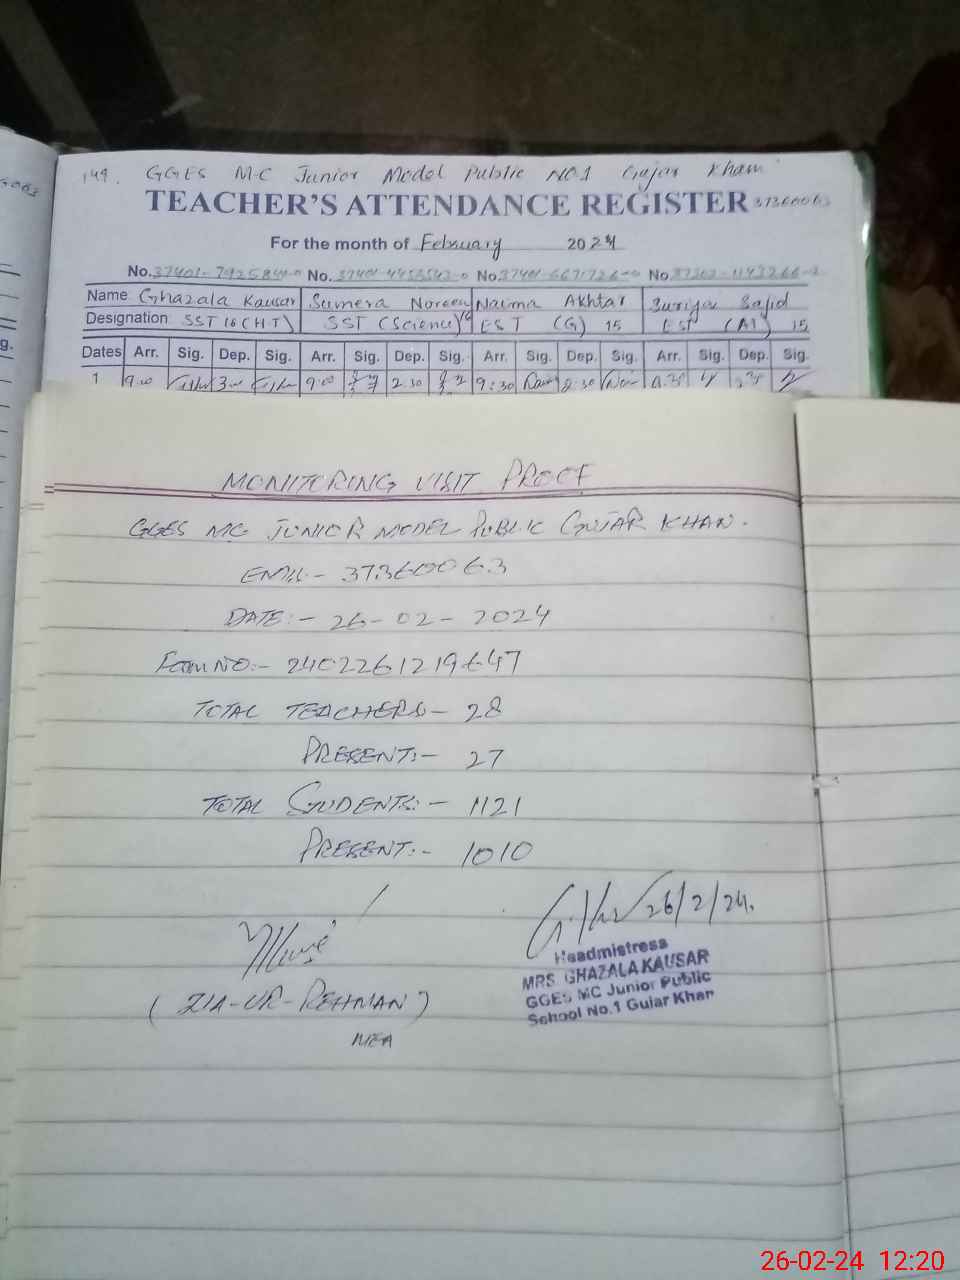 149. GGES M.C Junior Model Public NO.1 Gujar Kham
TEACHER'S ATTENDANCE REGISTER 37360063
For the month of February 2024
No. No. No. No.
Name Ghazala Kausar Sumera Noreen Naima Akhtar Suriya Sajid
Designation SST 16 (H.T) SST (Science) EST (G) 15 EST (A1) 15
Dates Arr. Sig. Dep. Sig. Arr. Sig. Dep. Sig. Arr. Sig. Dep. Sig. Arr. Sig. Dep. Sig.
1 9:00 3:00 9:00 2:30 9:30 2:30
MONITORING VISIT PROOF
GGES MC JUNIOR MODEL PUBLIC GUJAR KHAN.
EMIS:- 37360063
DATE:- 26-02-2024
FORM NO:- 2402261219647
TOTAL TEACHERS- 28
PRESENT:- 27
TOTAL STUDENTS:- 1121
PRESENT:- 1010
26/2/24.
Headmistress
MRS. GHAZALA KAUSAR
GGES MC Junior Public
School No.1 Gujar Khan
(ZIA-UR-REHMAN)
MEA
26-02-24 12:20